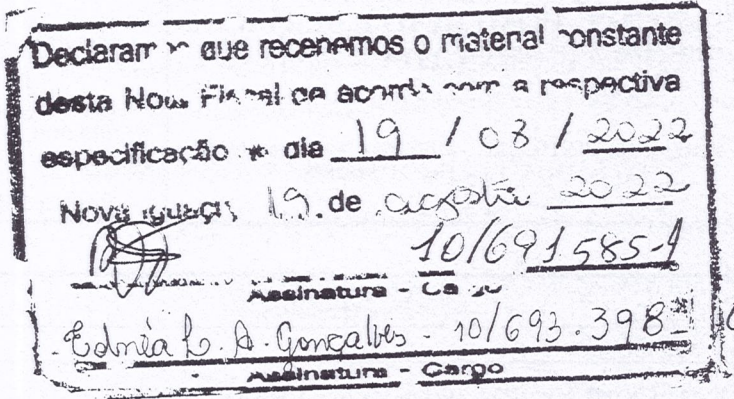 Declaramos que recebemos o material constante
desta Nota Fiscal de acordo com a respectiva
especificação * dia 19 / 08 / 2022
Nova Iguaçu, 19 de agosto 2022
10/691585-1
Assinatura - Cargo
Ednéa L. A. Gonçalves - 10/693.398-
Assinatura - Cargo